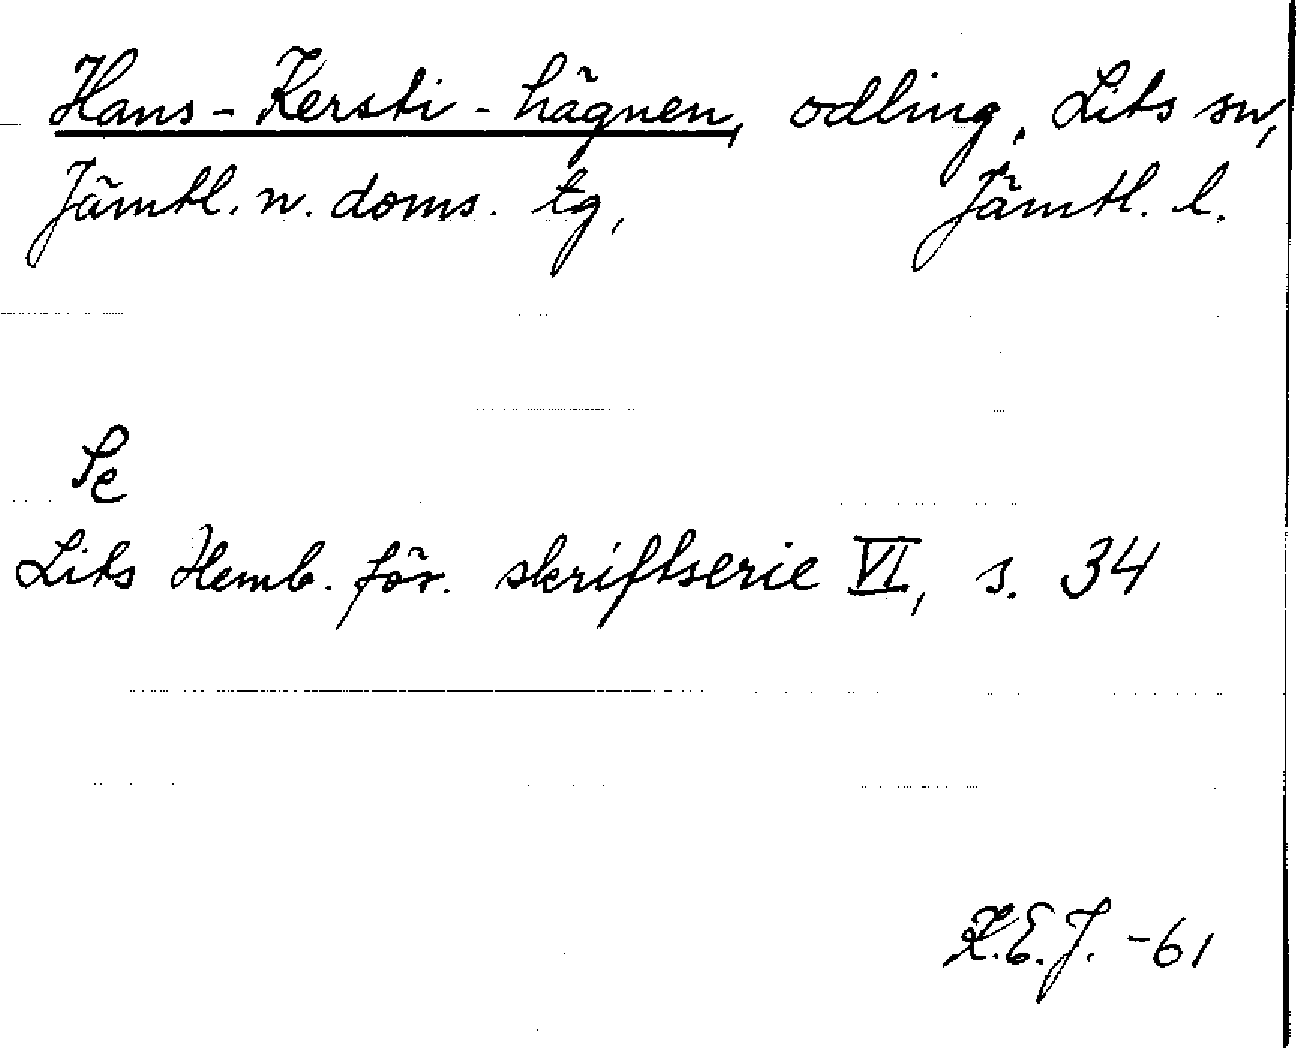 Hans-Kersti-hägnen, odling, Lits sn,
Jämtl. n. doms. tg, Jämtl. l.
Se
Lits Hemb. för. skriftserie VI, s. 34
K.E.J. -61